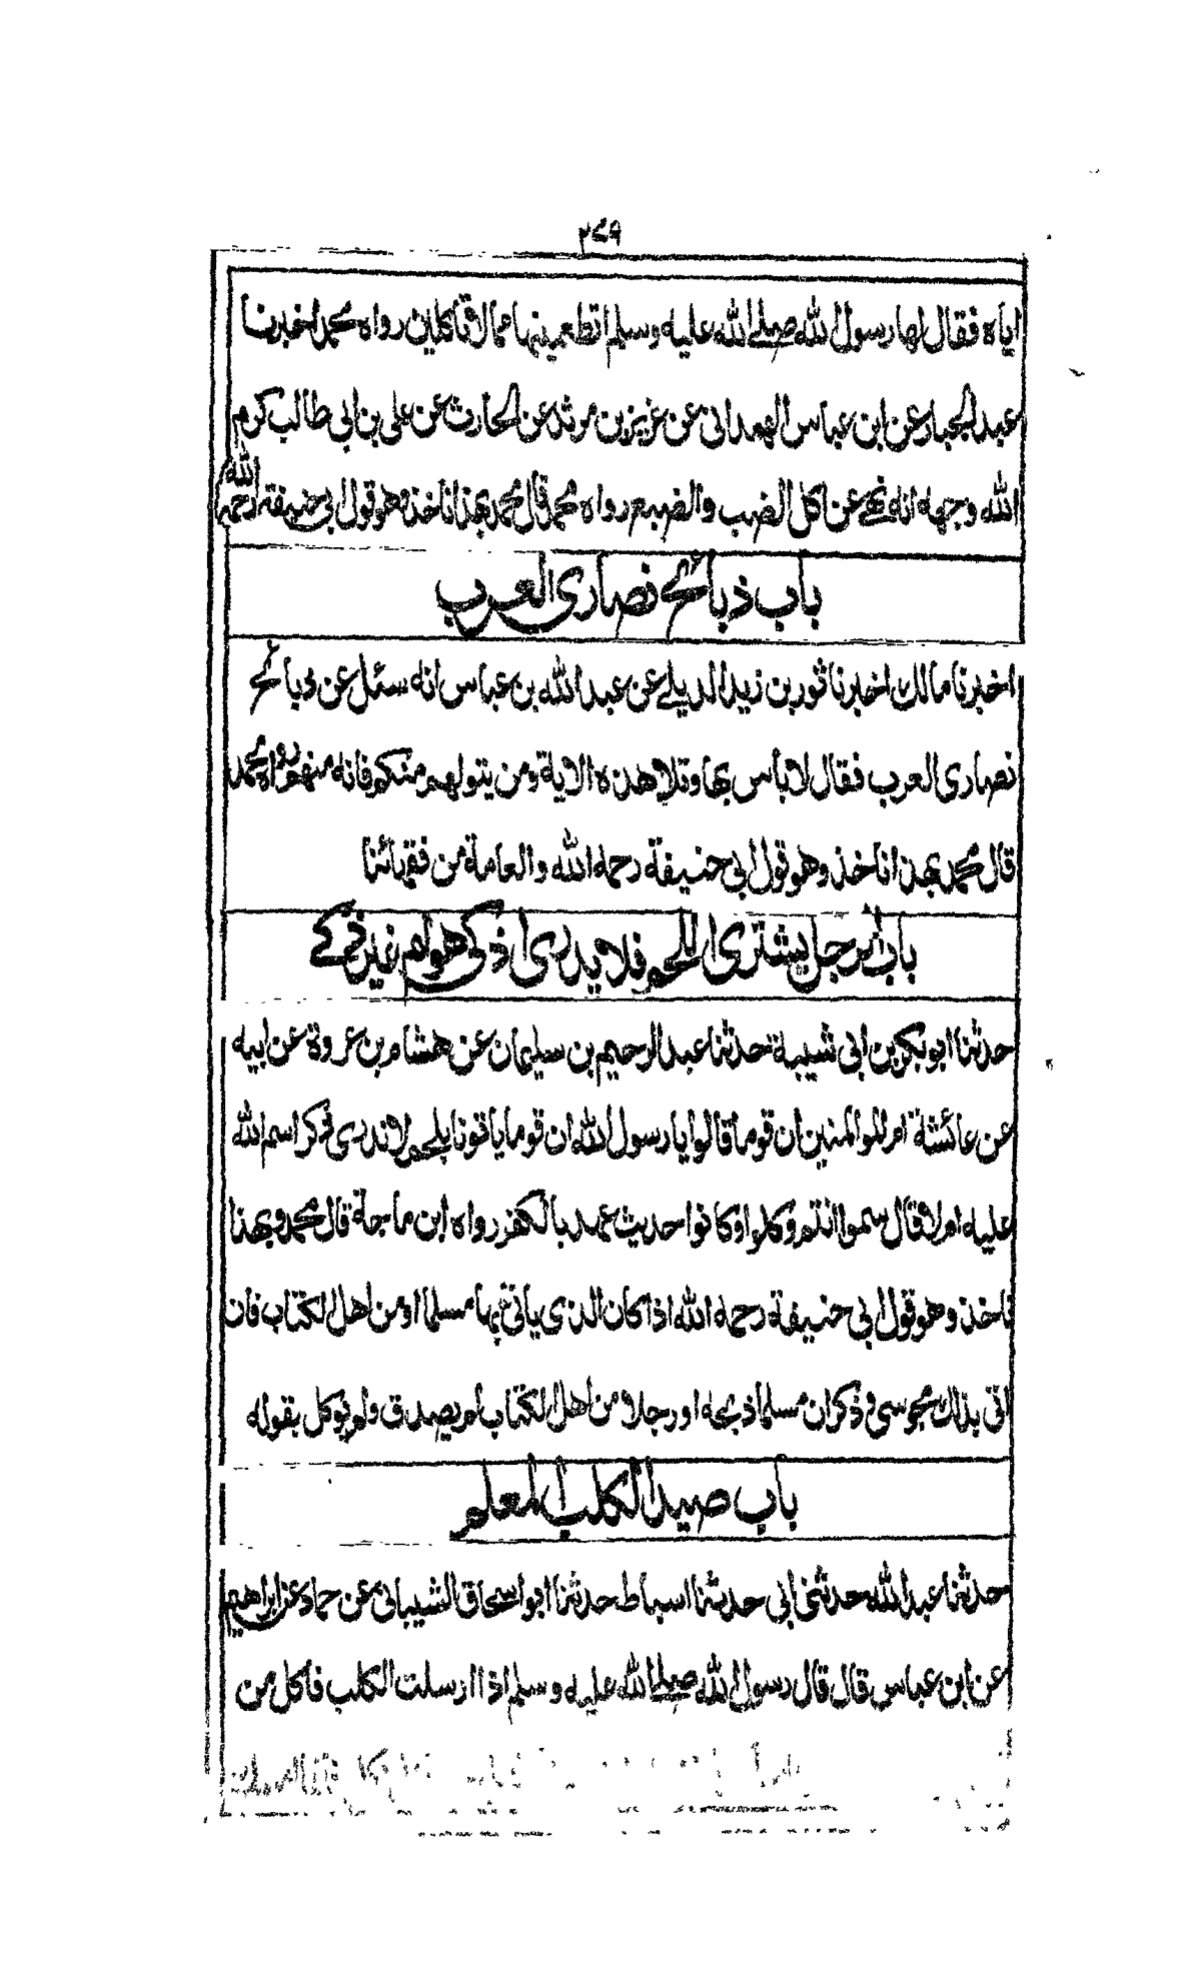 ٢٧٩
اياه فقال لها رسول الله صلى الله عليه وسلم اتطعمينها مما لا تاكلين رواه محمد اخبرنا
عبد الجبار عن ابن عباس الهمدانى عن عزيز بن مرثد عن الحارث عن على بن ابى طالب كرم
الله وجهه انه نهى عن اكل الضب والضبع رواه محمد قال محمد بهذا ناخذ وهو قول ابى حنيفة رحمه الله
باب ذبائح نصارى العرب
اخبرنا مالك اخبرنا ثور بن زيد الديلى عن عبد الله بن عباس انه سئل عن ذبائح
نصارى العرب فقال لا باس بها وتلا هذه الاية ومن يتولهم منكم فانه منهم رواه محمد
قال محمد بهذا ناخذ وهو قول ابى حنيفة رحمه الله والعامة من فقهائنا
باب الرجل يشترى اللحم فلا يدرى اذكى هو ام غير ذكى
حدثنا ابو بكر بن ابى شيبة حدثنا عبد الرحيم بن سليمان عن هشام بن عروة عن ابيه
عن عائشة ام المؤمنين ان قوما قالوا يا رسول الله ان قوما ياتونا بلحم لا ندرى ذكر اسم الله
عليه ام لا قال سموا انتم وكلوا وكانوا حديث عهد بالكفر رواه ابن ماجة قال محمد وبهذا
ناخذ وهو قول ابى حنيفة رحمه الله اذا كان الذى ياتى بها مسلما او من اهل الكتاب فان
اتى بذلك مجوسى وذكر ان مسلما ذبحه او رجلا من اهل الكتاب لم يصدق ولم يوكل بقوله
باب صيد الكلب المعلم
حدثنا عبد الله حدثنى ابى حدثنا اسباط حدثنا ابو اسحاق الشيبانى عن حماد عن ابراهيم
عن ابن عباس قال قال رسول الله صلى الله عليه وسلم اذا ارسلت الكلب فاكل من